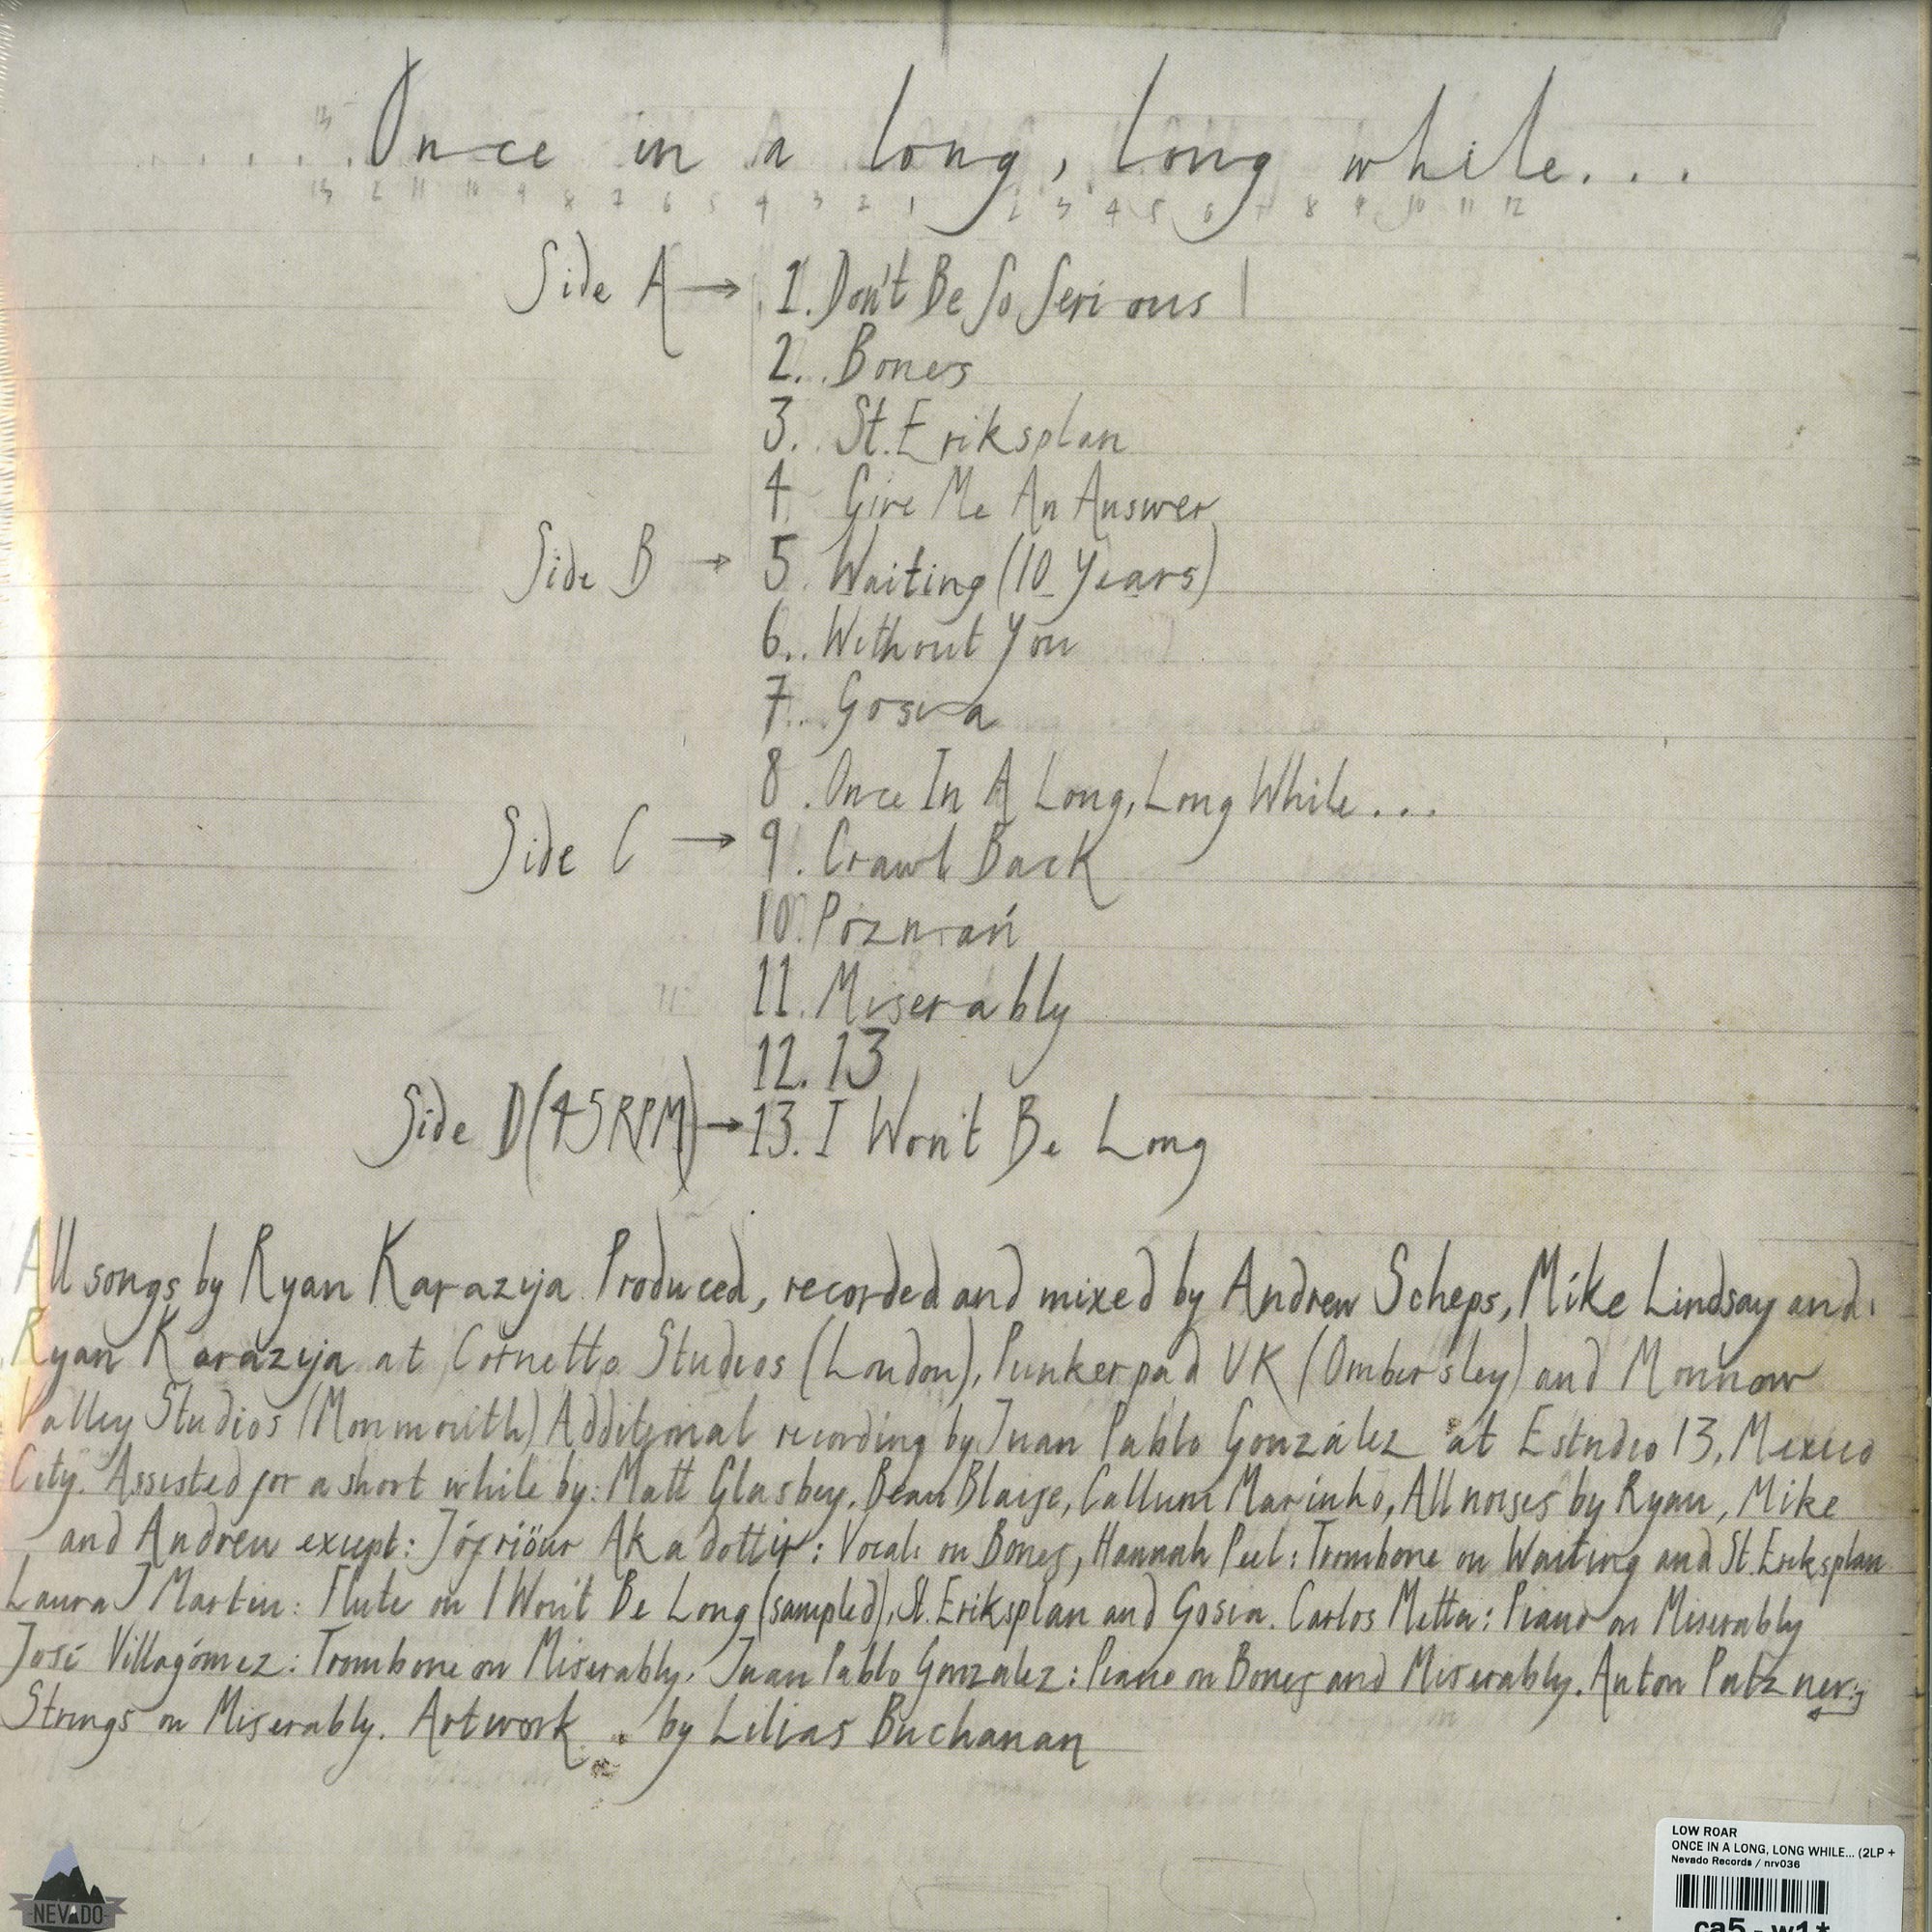 Once in a long, long while...
13 2 11 10 9 8 7 6 5 4 3 2 1 2 3 4 5 6 7 8 9 10 11 12
Side A → 1. Don't Be So Serious
2. Bones
3. St. Eriksplan
4 Give Me An Answer
Side B → 5. Waiting (10 Years)
6. Without You
7. Gosia
8. Once In A Long, Long While...
Side C → 9. Crawl Back
10. Poznań
11. Miserably
12. 13
Side D (45RPM) → 13. I Won't Be Long
All songs by Ryan Karazija. Produced, recorded and mixed by Andrew Scheps, Mike Lindsay and
Ryan Karazija at Cornetto Studios (London), Punkerpad UK (Ombersley) and Monnow
Valley Studios (Monmouth) Additional recording by Juan Pablo González at Estudio 13, Mexico
City. Assisted for a short while by: Matt Glasbey, Bean Blaise, Callum Marinho, All noises by Ryan, Mike
and Andrew except: Jófríöur Akadottir: Vocals on Bones, Hannah Peel: Trombone on Waiting and St. Eriksplan
Laura J Martin: Flute on I Won't Be Long (sampled), St. Eriksplan and Gosia. Carlos Metta: Piano on Miserably
José Villagómez: Trombone on Miserably. Juan Pablo Gonzalez: Piano on Bones and Miserably. Anton Patzner:
Strings on Miserably. Artwork by Lilias Buchanan
NEVADO
LOW ROAR
ONCE IN A LONG, LONG WHILE... (2LP +
Nevado Records / nrv036
ca5 - w1*